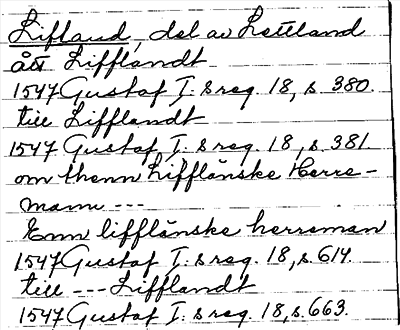 Lifland, del av Lettland
ått Lifflandt
1547 Gustaf I:s reg. 18, s. 380.
till Lifflandt
1547 Gustaf I:s reg. 18, s. 381.
om thenn Liffländske Herre-
mann ---
Enn liffländske herreman
1547 Gustaf I:s reg. 18, s. 614.
till --- Lifflandt
1547 Gustaf I:s reg. 18, s. 663.